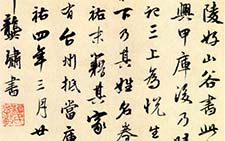 陵好山谷書此
興甲庫後乃
記三上為悅生
下乃其姓名卷
祐末籍其家
有台州抵當庫
祐四年三月廿
龔璛書